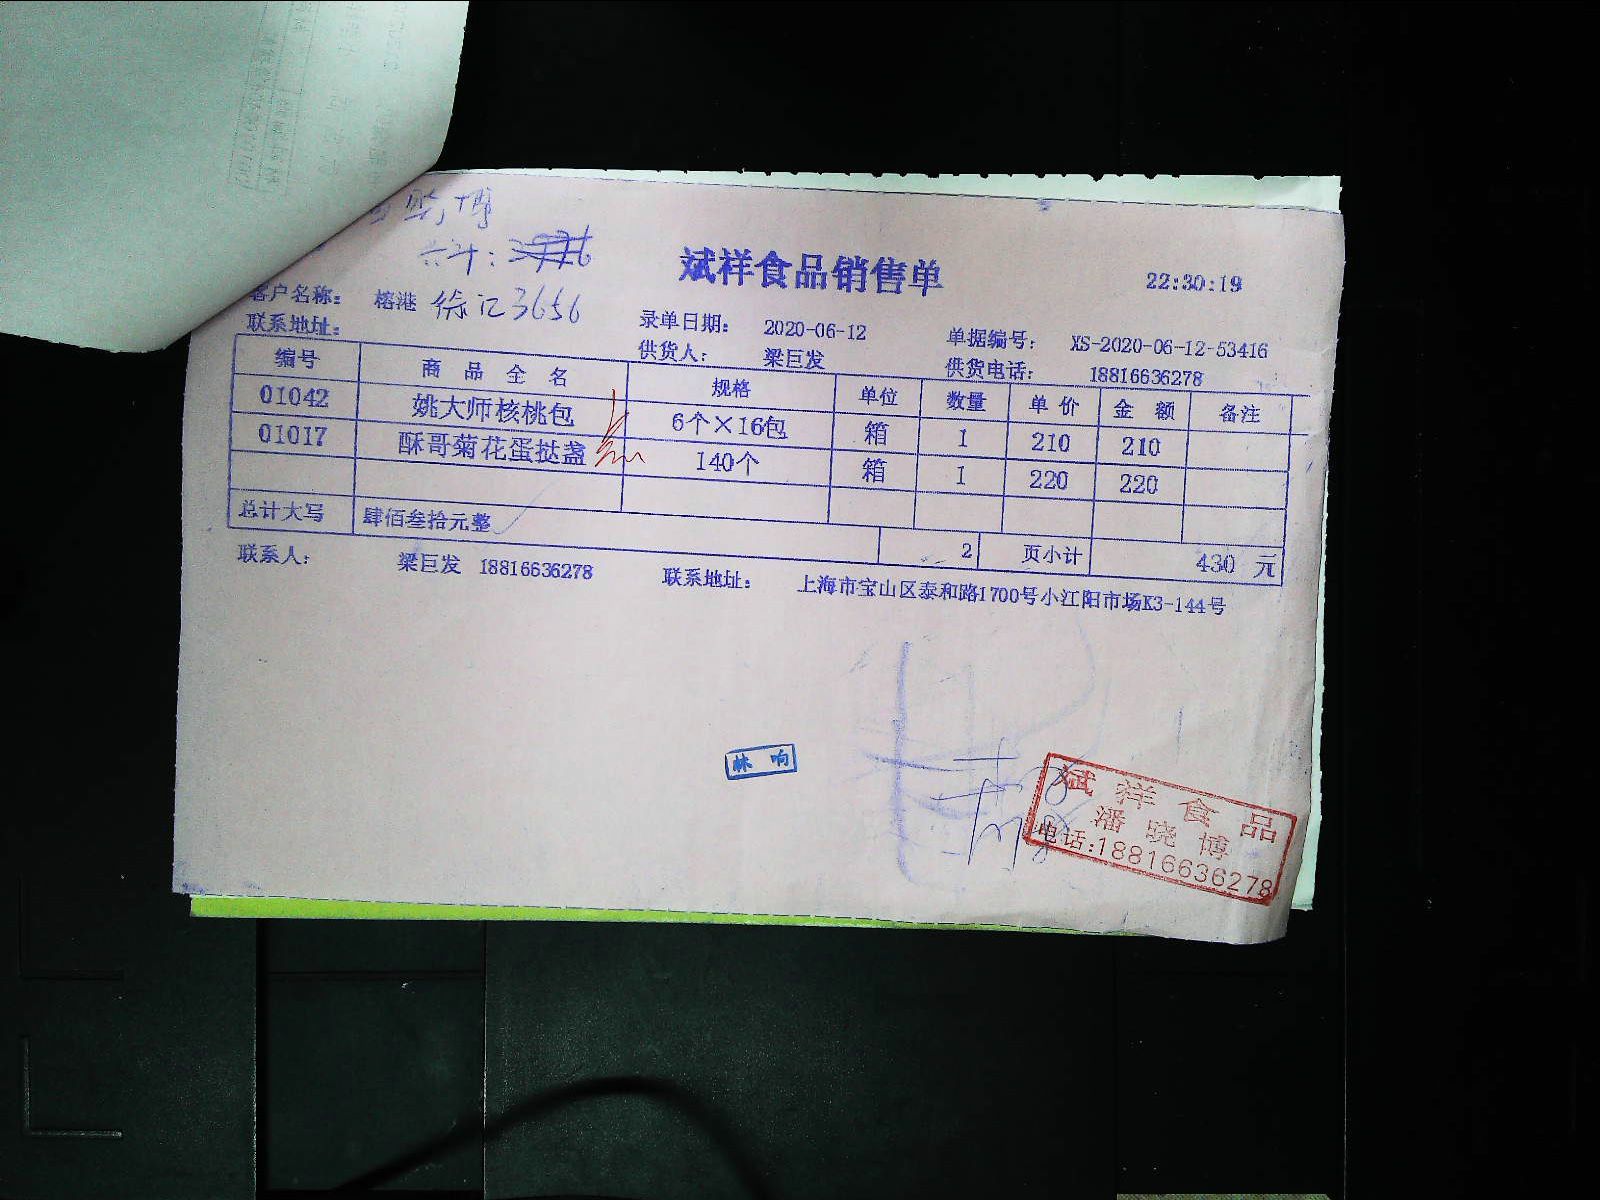 博
共计:
斌祥食品销售单
22:30:19
客户名称: 榕港 徐记3656
录单日期: 2020-06-12
单据编号: XS-2020-06-12-53416
联系地址:
供货人: 梁巨发
供货电话: 18816636278
编号 商品全名 规格 单位 数量 单价 金额 备注
01042 姚大师核桃包 6个×16包 箱 1 210 210
01017 酥哥菊花蛋挞盏 140个 箱 1 220 220
总计大写 肆佰叁拾元整 2 页小计 430 元
联系人: 梁巨发 18816636278 联系地址: 上海市宝山区泰和路1700号小江阳市场K3-144号
林响
斌祥食品
潘晓博
电话:18816636278